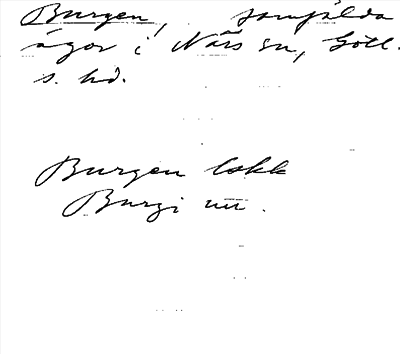 Burgen, samfällda
ägor i När sn, Gotl.
s. hd.
Burgen lokk
Burgi nu.